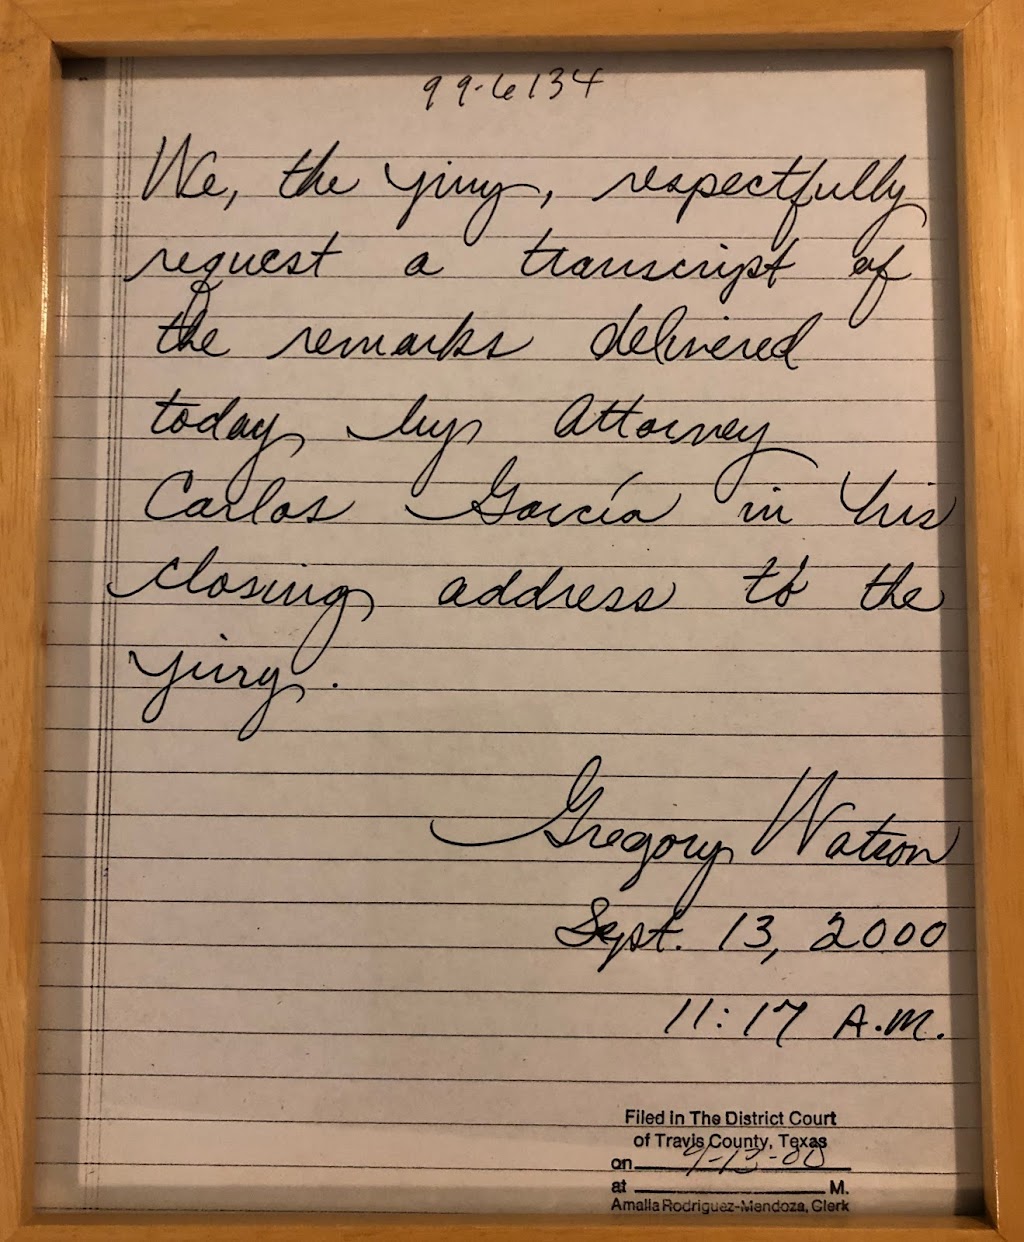 99-6134
We, the jury, respectfully
request a transcript of
the remarks delivered
today by Attorney
Carlos García in his
closing address to the
jury.
Gregory Watson
Sept. 13, 2000
11:17 A.M.
Filed in The District Court
of Travis County, Texas
on 9-13-00
at M.
Amalia Rodriguez-Mendoza, Clerk